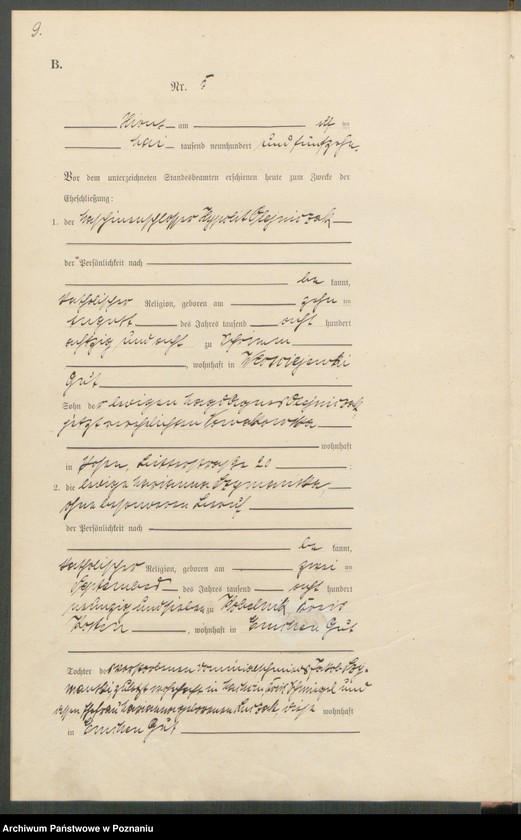 9.
B.
Nr. 5
am elf ten
Mai tausend neunhundert und fünfzehn.
Vor dem unterzeichneten Standesbeamten erschienen heute zum Zwecke der
Eheschließung:
1. der Maschinenschlosser Hypolit Olejniczak
der Persönlichkeit nach
be kannt,
katholischer Religion, geboren am zehn ten
August des Jahres tausend acht hundert
achtzig und acht zu Schrimm
, wohnhaft in
Gut
Sohn der ledigen Agnes Olejniczak
jetzt verehelichten Nowakowska
wohnhaft
in Posen, 20 ;
2. die ledige Marianna Szymanska,
ohne besonderen Beruf,
der Persönlichkeit nach
be kannt,
katholischer Religion, geboren am zwei ten
September des Jahres tausend acht hundert
neunzig und sieben zu Kobelnik Kreis
Kosten , wohnhaft in Emchen Gut
Tochter des verstorbenen Jakob Szy-
manski zuletzt wohnhaft in Kreis Schmiegel und
dessen Ehefrau Marianna geborenen diese wohnhaft
in Emchen Gut
Archiwum Państwowe w Poznaniu